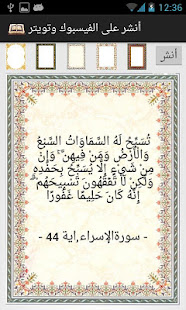 12:36
أنشر على الفيسبوك وتويتر
أنشر
تُسَبِّحُ لَهُ السَّمَاوَاتُ السَّبْعُ
وَالْأَرْضُ وَمَن فِيهِنَّ ۚ وَإِن
مِّن شَيْءٍ إِلَّا يُسَبِّحُ بِحَمْدِهِ
وَلَٰكِن لَّا تَفْقَهُونَ تَسْبِيحَهُمْ ۗ
إِنَّهُ كَانَ حَلِيمًا غَفُورًا
- سورةالإسراء,اية 44 -